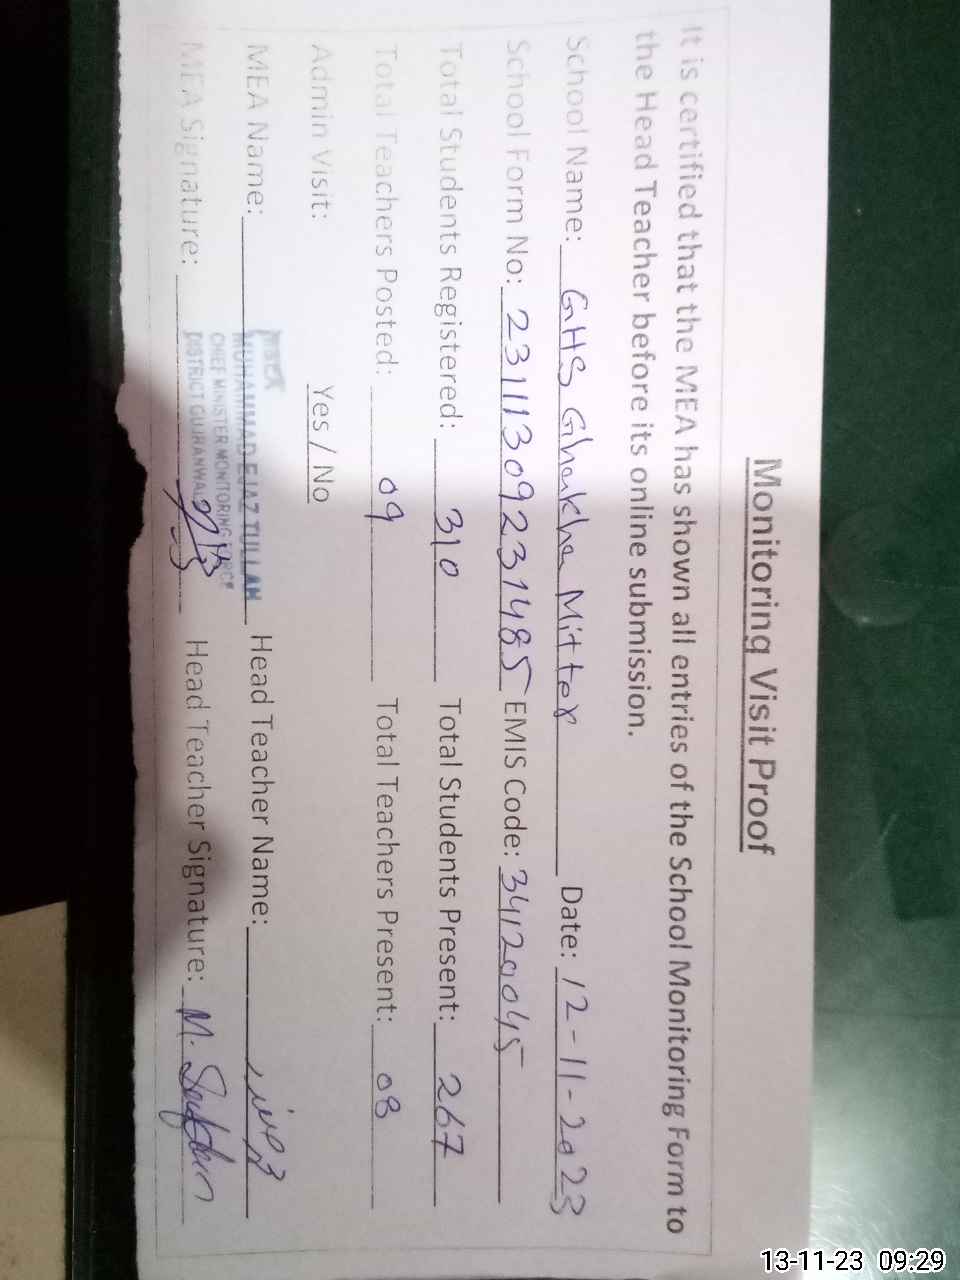 Monitoring Visit Proof
It is certified that the MEA has shown all entries of the School Monitoring Form to
the Head Teacher before its online submission.
School Name: GHS Ghakha Mitter Date: 12-11-2023
School Form No: 23111309231485 EMIS Code: 34120045
Total Students Registered: 310 Total Students Present: 267
Total Teachers Posted: 09 Total Teachers Present: 08
Admin Visit: Yes / No
MEA Name: Head Teacher Name:
MUHAMMAD EJAZ TULLAH
CHIEF MINISTER MONITORING FORCE
DISTRICT GUJRANWALA
MEA Signature: Head Teacher Signature: M.
13-11-23 09:29